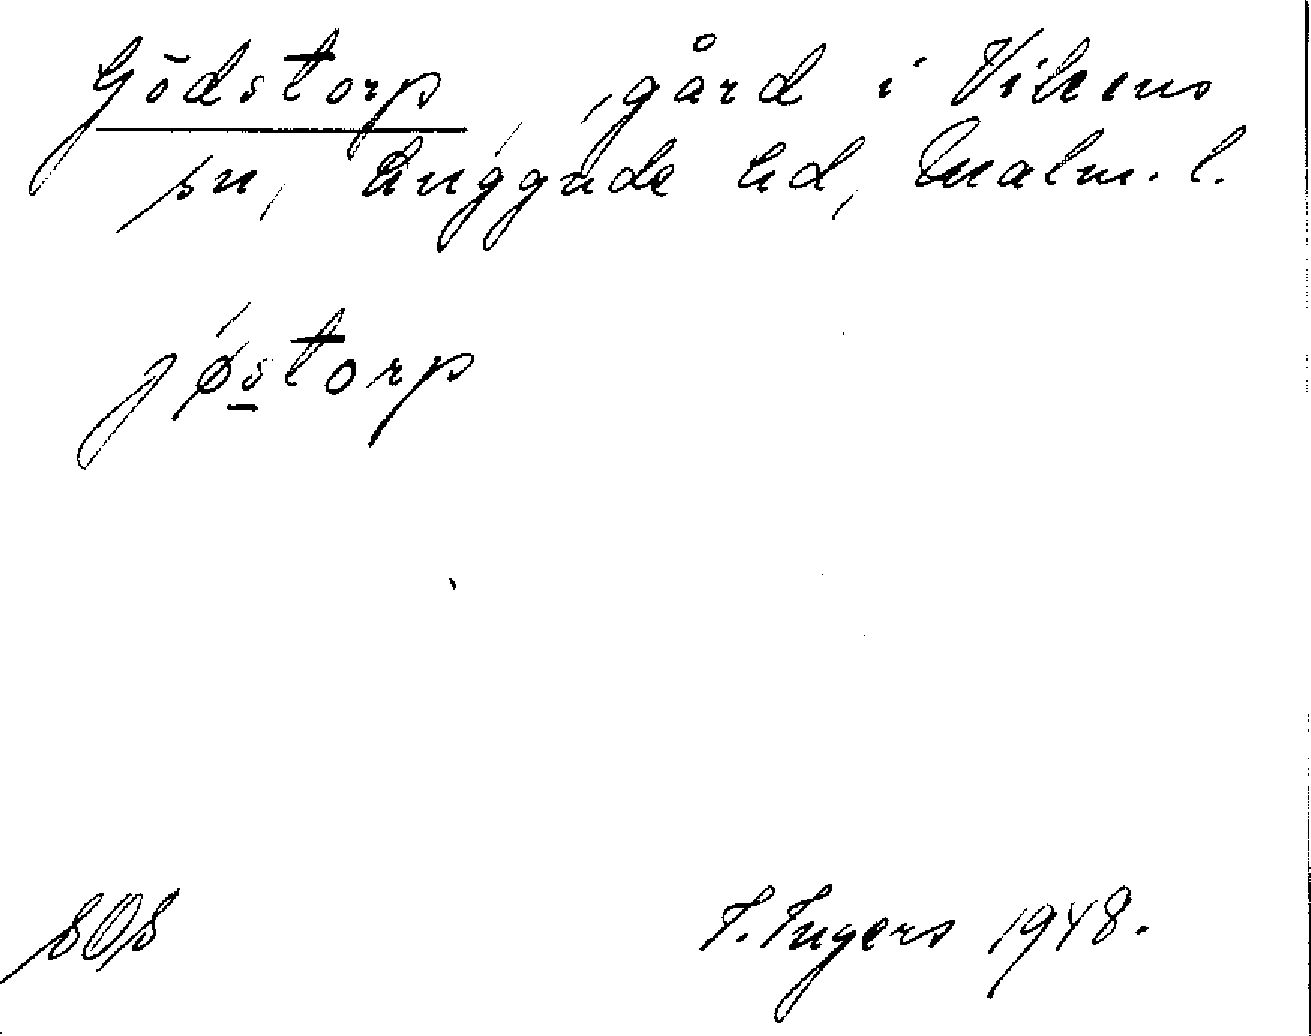 Gödstorp, gård i Vikens
sn, Luggude hd, Malm. l.
jǿs̲torp
SOS I. Ingers 1948.